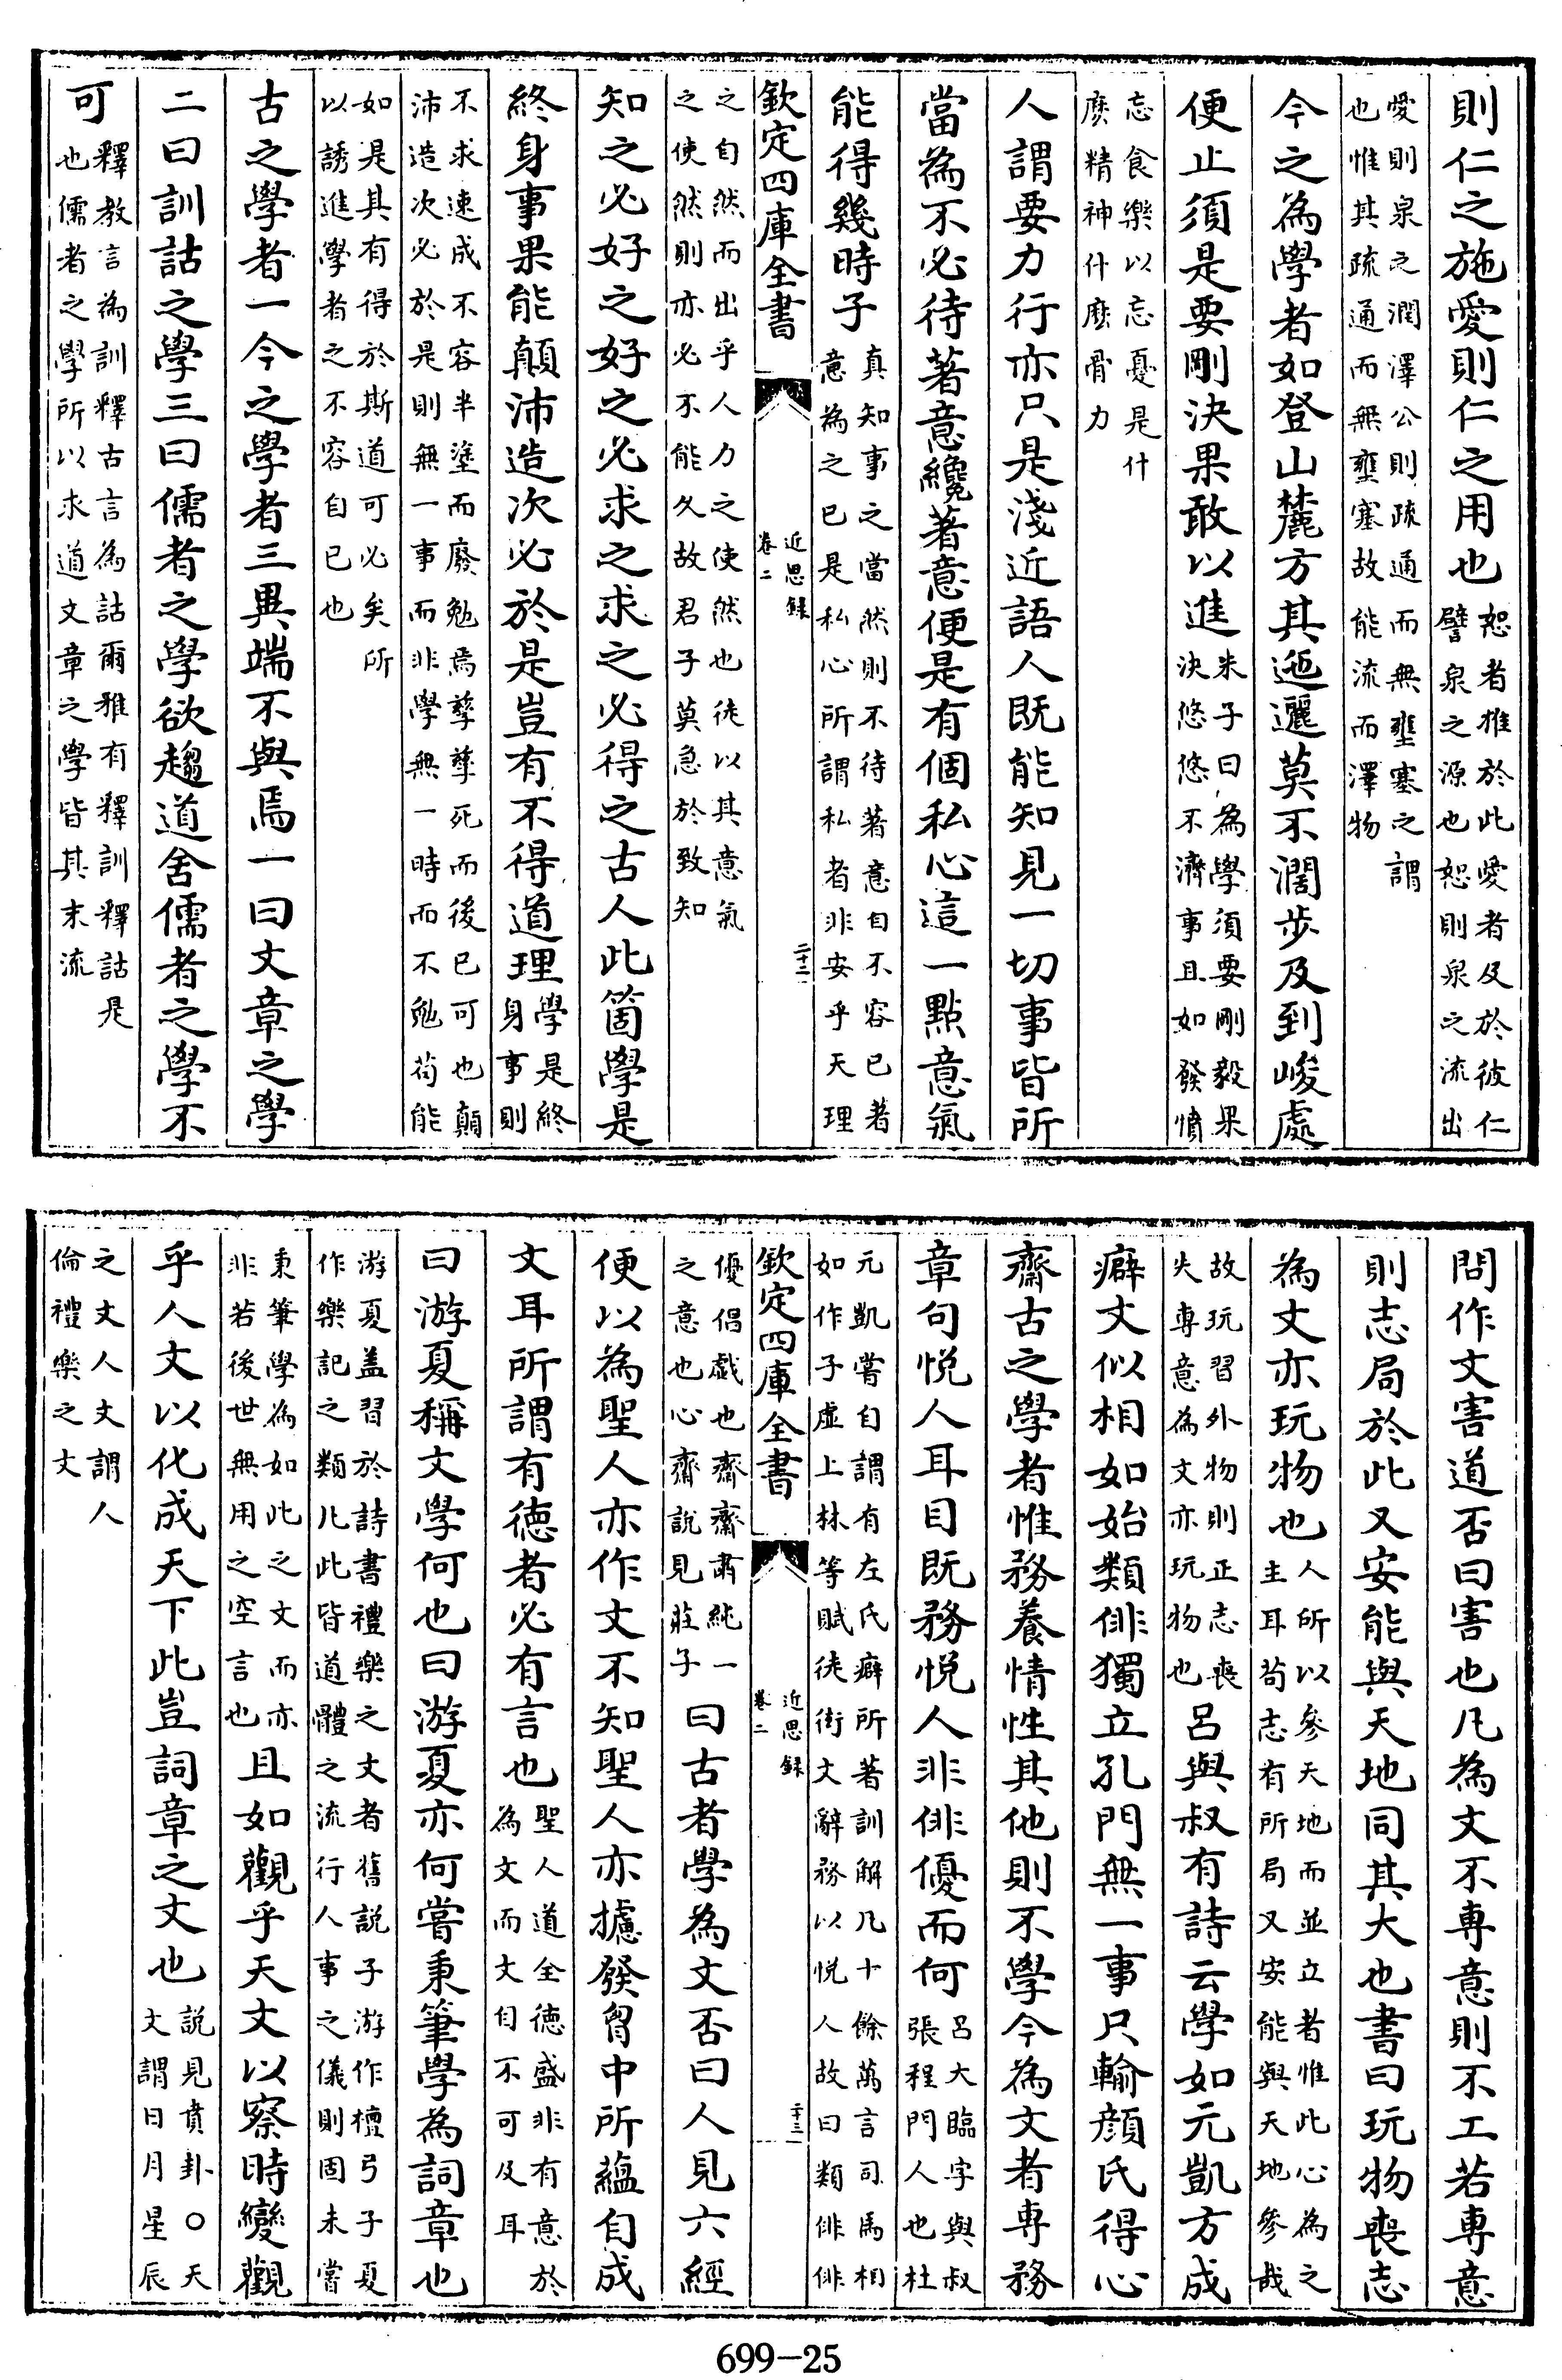 則仁之施愛則仁之用也恕者推於此愛者及於彼仁譬泉之源也恕則泉之流出
愛則泉之潤澤公則疏通而無壅塞之謂也惟其疏通而無壅塞故能流而澤物
今之為學者如登山麓方其迤邐莫不濶步及到峻處
便止須是要剛決果敢以進朱子曰為學須要剛毅果決悠悠不濟事且如發憤
忘食樂以忘憂是什麽精神什麽骨力
人謂要力行亦只是淺近語人既能知見一切事皆所
當為不必待著意纔著意便是有個私心這一點意氣
能得幾時子真知事之當然則不待著意自不容已著意為之已是私心所謂私者非安乎天理
欽定四庫全書 近思録卷二 二十二
之自然而出乎人力之使然也徒以其意氣之使然則亦必不能久故君子莫急於致知
知之必好之好之必求之求之必得之古人此箇學是
終身事果能顛沛造次必於是豈有不得道理學是終身事則
不求速成不容半塗而廢勉焉孳孳死而後已可也顛沛造次必於是則無一事而非學無一時而不勉苟能
如是其有得於斯道可必矣所以誘進學者之不容自已也
古之學者一今之學者三異端不與焉一曰文章之學
二曰訓詁之學三曰儒者之學欲趨道舍儒者之學不
可釋教言為訓釋古言為詁爾雅有釋訓釋詁是也儒者之學所以求道文章之學皆其末流
問作文害道否曰害也凡為文不專意則不工若專意
則志局於此又安能與天地同其大也書曰玩物喪志
為文亦玩物也人所以參天地而並立者惟此心為之主耳苟志有所局又安能與天地參哉
故玩習外物則正志喪失專意為文亦玩物也呂與叔有詩云學如元凱方成
癖文似相如始類俳獨立孔門無一事只輸顔氏得心
齋古之學者惟務養情性其他則不學今為文者專務
章句悅人耳目既務悅人非俳優而何呂大臨字與叔張程門人也杜
元凱嘗自謂有左氏癖所著訓解凡十餘萬言司馬相如作子虛上林等賦徒衒文辭務以悅人故曰類俳俳
欽定四庫全書 近思録卷二 二十三
優倡戲也齋齋肅純一之意也心齋說見莊子曰古者學為文否曰人見六經
便以為聖人亦作文不知聖人亦攄發胷中所蘊自成
文耳所謂有德者必有言也聖人道全德盛非有意於為文而文自不可及耳
曰游夏稱文學何也曰游夏亦何嘗秉筆學為詞章也
游夏盖習於詩書禮樂之文者舊說子游作檀弓子夏作樂記之類凡此皆道體之流行人事之儀則固未嘗
秉筆學為如此之文而亦非若後世無用之空言也且如觀乎天文以察時變觀
乎人文以化成天下此豈詞章之文也說見賁卦○天文謂日月星辰
之文人文謂人倫禮樂之文
699-25